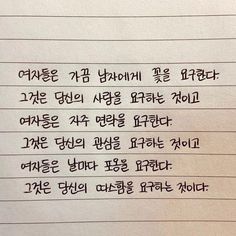 여자들은 가끔 남자에게 꽃을 요구한다.
그것은 당신의 사랑을 요구하는 것이고
여자들은 자주 연락을 요구한다.
그것은 당신의 관심을 요구하는 것이고
여자들은 날마다 포옹을 요구한다.
그것은 당신의 따스함을 요구하는 것이다.